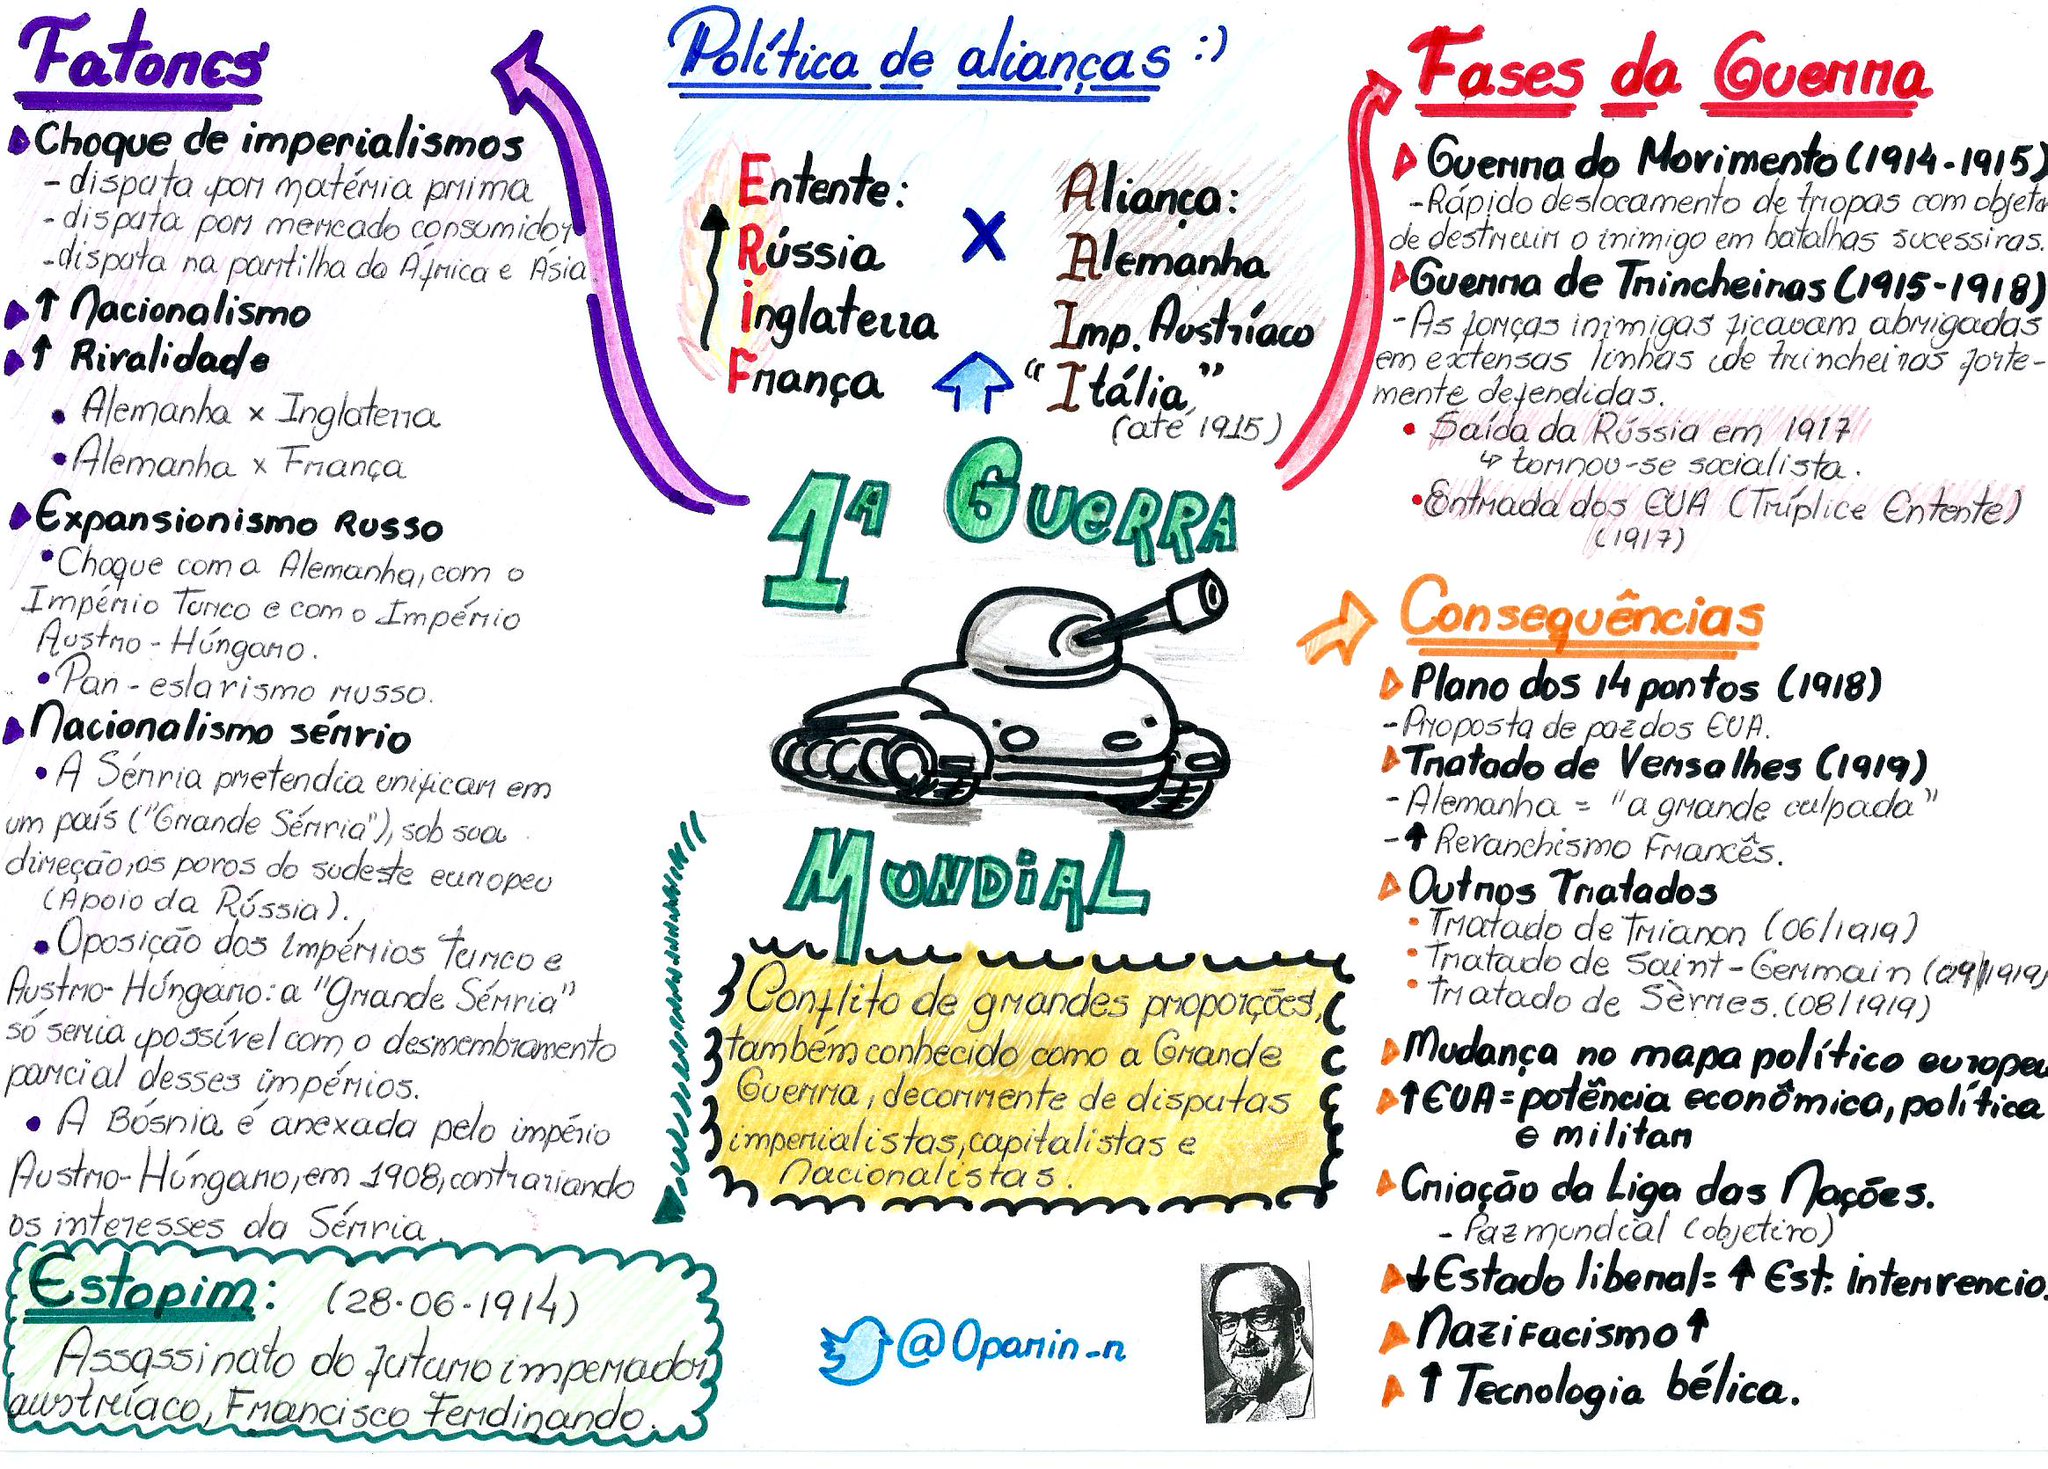 Fatores
Choque de imperialismos
- disputa por matéria prima
- disputa por mercado consumidor
- disputa na partilha da África e Ásia.
↑ Nacionalismo
↑ Rivalidade
• Alemanha x Inglaterra
• Alemanha x França
Expansionismo Russo
• Choque com a Alemanha, com o
Império Turco e com o Império
Austro-Húngaro.
• Pan-eslavismo russo.
Nacionalismo sérvio
• A Sérvia pretendia unificar em
um país ("Grande Sérvia"), sob sua
direção, os povos do sudeste europeu
(Apoio da Rússia).
• Oposição dos Impérios turco e
Austro-Húngaro: a "Grande Sérvia"
só seria possível com o desmembramento
parcial desses impérios.
• A Bósnia é anexada pelo império
Austro-Húngaro, em 1908, contrariando
os interesses da Sérvia.
Estopim: (28-06-1914)
Assassinato do futuro imperador
austríaco, Francisco Ferdinando.
Política de alianças :)
Entente:
Rússia
inglaterra
França
X
Aliança:
Alemanha
Imp. Austríaco
"Itália"
(até 1915)
1ª Guerra
Mundial
Conflito de grandes proporções,
também conhecido como a Grande
Guerra, decorrente de disputas
imperialistas, capitalistas e
Nacionalistas.
@Oparin_n
Fases da Guerra
Guerra do Movimento (1914-1915)
- Rápido deslocamento de tropas com objeto
de destruir o inimigo em batalhas sucessivas.
Guerra de Trincheiras (1915-1918)
- As forças inimigas ficavam abrigadas
em extensas linhas de trincheiras forte-
mente defendidas.
• Saída da Rússia em 1917
↳ tornou-se socialista.
• Entrada dos EUA (Tríplice Entente)
(1917)
Consequências
Plano dos 14 pontos (1918)
- Proposta de paz dos EUA.
Tratado de Versalhes (1919)
- Alemanha = "a grande culpada"
- ↑ Revanchismo Francês.
Outros Tratados
• Tratado de Trianon (06/1919)
• Tratado de Saint-Germain (09/1919)
• Tratado de Sèvres. (08/1919)
Mudança no mapa político europeu
↑ EUA = potência econômica, política
e militar
Criação da Liga das Nações.
- Paz mundial (objetivo)
↓ Estado liberal = ↑ Est. intervencio.
Nazifacismo ↑
↑ Tecnologia bélica.